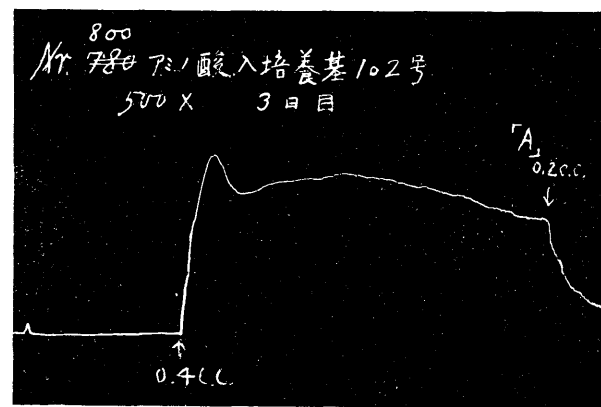 800
Nr. 780 アミノ酸入培養基102号
500X 3日目
「A」
0.2c.c.
0.4c.c.